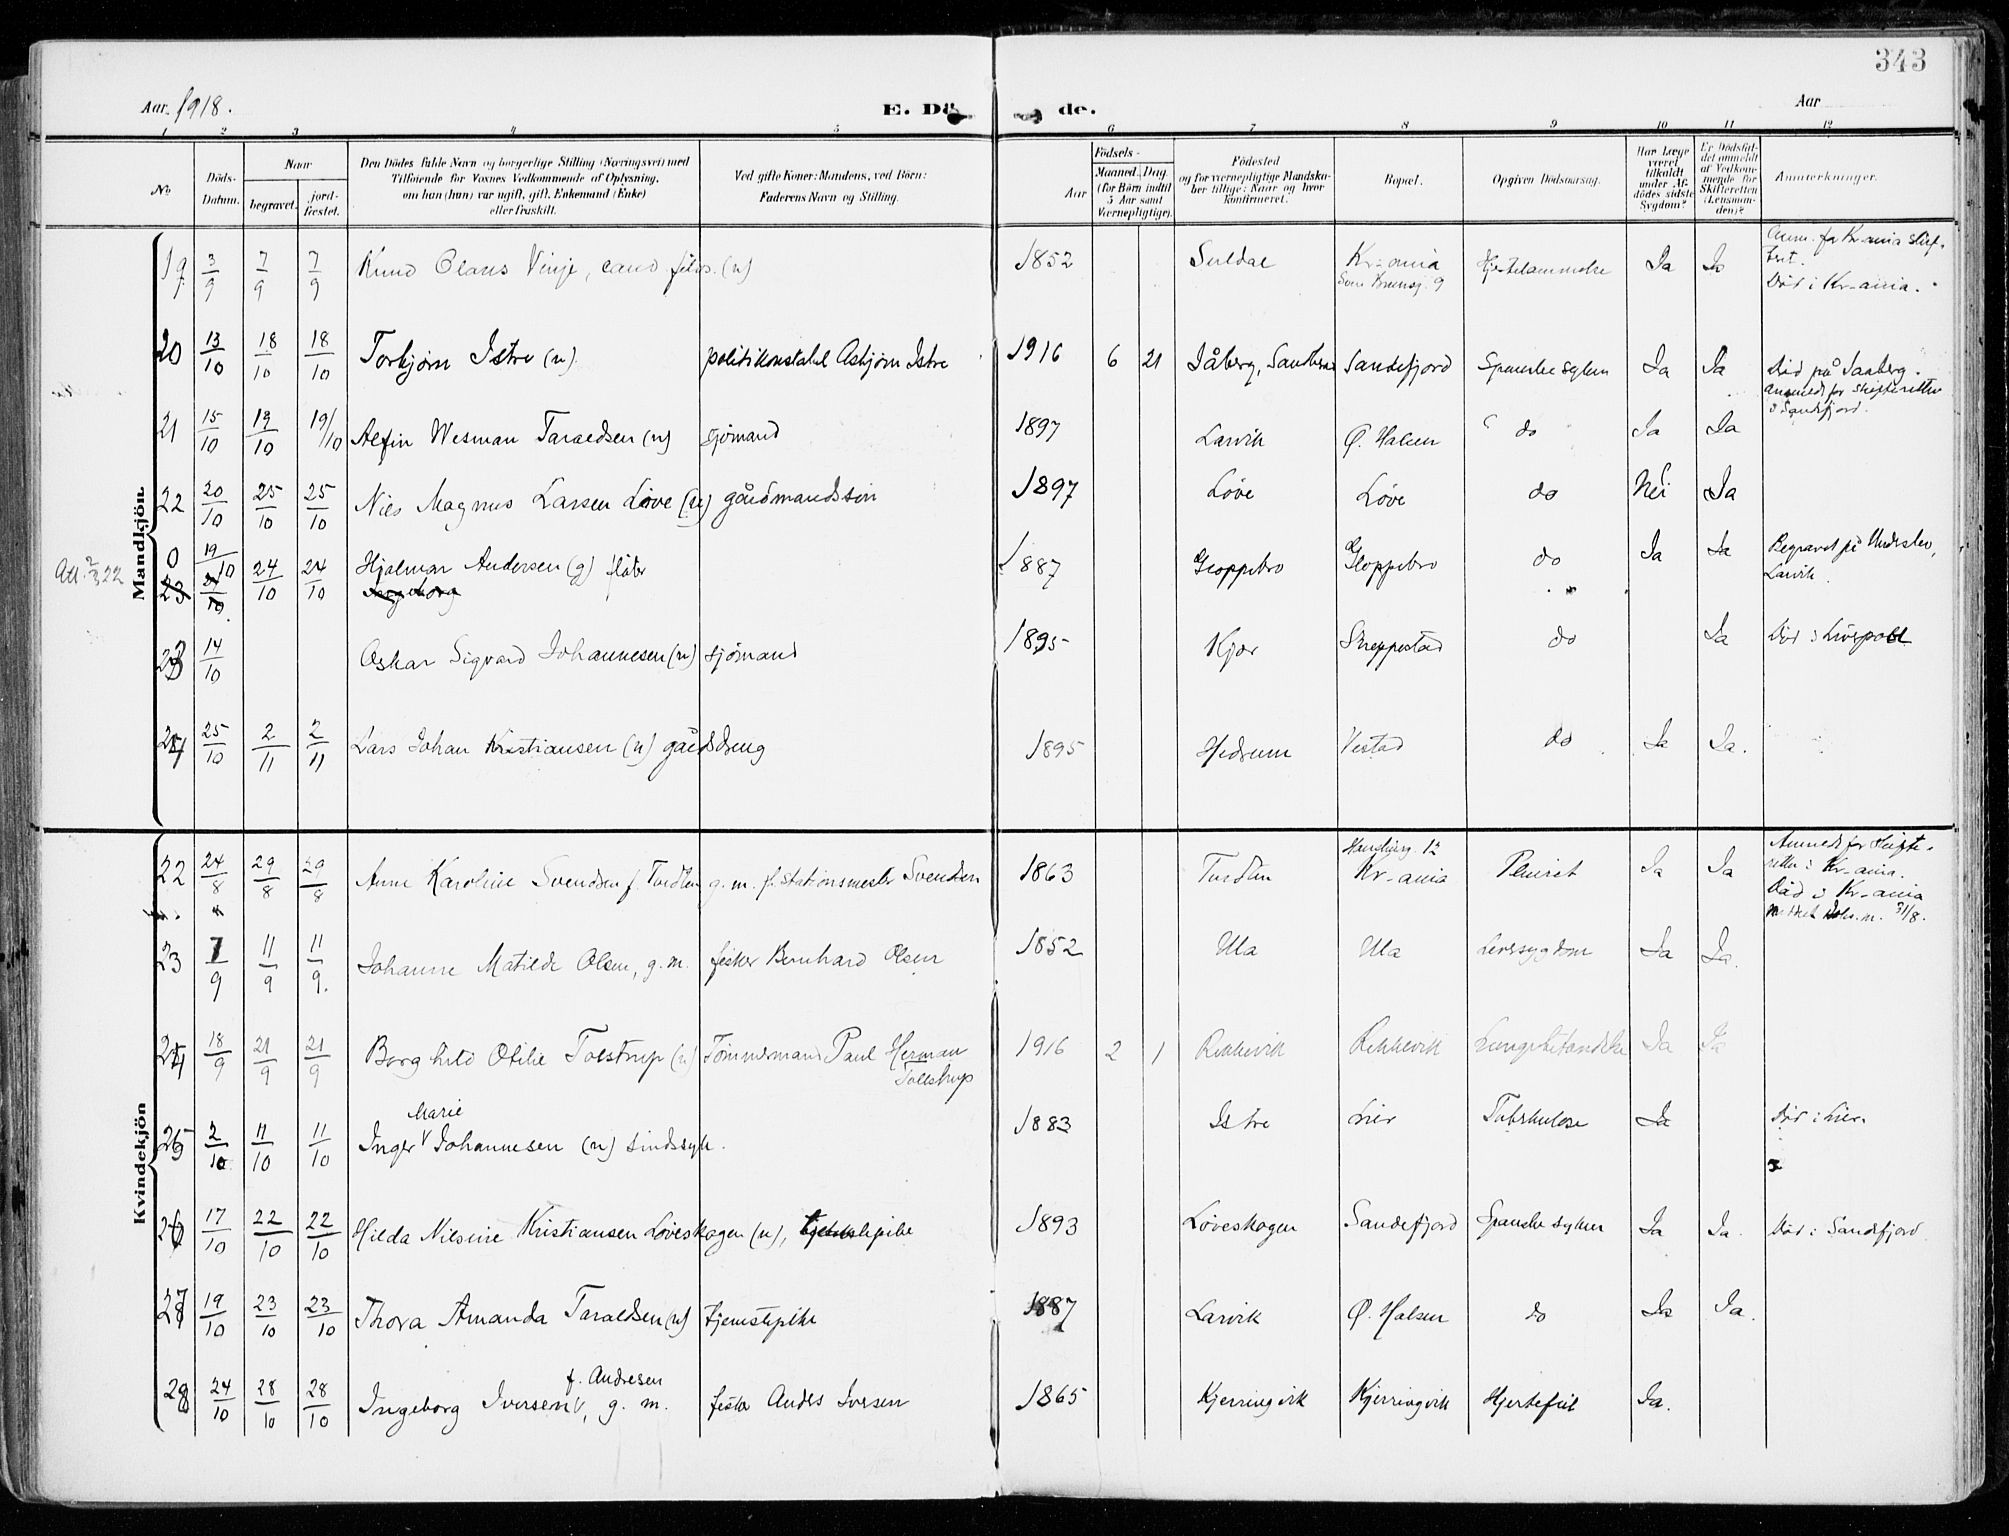 343
Aar 1918.
E. Dö de.
Aar
1 2 3 4 5 6 7 8 9 10 11 12
No
Döds-Datum.
Naar
begravet.
jord-fæstet.
Den Dödes fulde Navn og borgerlige Stilling (Næringsvei) med
Tilföiende for Voxnes Vedkommende af Oplysning,
om han (hun) var ugift, gift, Enkemand (Enke)
eller fraskilt.
Ved gifte Koner: Mandens, ved Börn:
Faderens Navn og Stilling.
Födsels-
Aar
Maaned. Dag
(for Börn indtil
5 Aar samt
Værnepligtige).
Födested
og for værnepligtige Mandska-
ber tillige: Naar og hvor
konfirmeret.
Bopæl.
Opgiven Dödsaarsag.
Har Læge
været
tilkaldt
under Af-
dödes sidste
Sygdom?
Er Dödsfal-
det anmeldt
af Vedkom-
mende for
Skifteretten
(Lensman-
den)?
Anmærkninger.
Mandkjön.
19 3/9 7/9 7/9 Knud Olaus Vinje, cand. filos. (u) 1852 Suldal Kr-ania Ja Ja
Død i Kr-ania.
20 13/10 18/10 18/10 Torbjørn Istre (u) politikonstabel Asbjørn Istre 1916 6 21 Jåberg, Sandherad Sandefjord Spanske syken Ja Ja Død på Jaaberg.
Anmeldt for skifteretten
i Sandefjord.
21 15/10 19/10 19/10 Alfin Wesman Taraldsen (u) sjømand 1897 Larvik Ø. Halsen do Ja Ja
22 20/10 25/10 25/10 Nils Magnus Larsen Løve (u) gårdmandssøn 1897 Løve Løve do Nei Ja
Att. 2/3 22
0 19/10 24/10 24/10 Hjalmar Andersen (g) fløter 1887 Gloppebro Gloppebro do Ja Ja Begravet på Undersbo,
Larvik.
23 14/10 Oskar Sigvard Johannesen (u) sjømand 1895 Kjær Skreppestad do Ja Død i Liverpool
24 25/10 2/11 2/11 Lars Johan Kristiansen (u) gårdsdreng 1895 Hedrum Vestad do Ja Ja.
Kvindekjön
22 24/8 29/8 29/8 Anne Karoline Svendsen f. Tordlen g. m. f. stationsmester Svendsen 1863 Tordlen Kr-ania Pleurit Ja Ja Anmeldt for skifte-
retten i Kr-ania.
Død i Kr-ania
23 7/9 11/9 11/9. Johanne Matilde Olsen, g. m. fisker Bernhard Olsen 1852 Ula Ula Leversygdom Ja Ja.
24 18/9 21/9 21/9 Borghild Otilie Tolstrup (u) Tømmermand Paul Herman
Tollstrup 1916 2 1 Rekkevik Rekkevik Lungebetændelse Ja Ja
25 2/10 11/10 11/10 Inger Marie Johannesen (u) sindssyk. 1883 Istre Lier Tuberkulose Ja Død i Lier.
26 17/10 22/10 22/10 Hilda Nilsine Kristiansen Løveskogen (u), tjenestepike 1893 Løveskogen Sandefjord Spanske syken Ja Ja. Død i Sandefjord
27 19/10 23/10 23/10 Thora Amanda Taraldsen (u) tjenestepike 1887 Larvik Ø. Halsen do Ja Ja.
28 24/10 28/10 28/10 Ingeborg Iversen f. Andresen, g. m. fisker Anders Iversen 1865 Kjerringvik Kjerringvik Hjertefeil Ja.